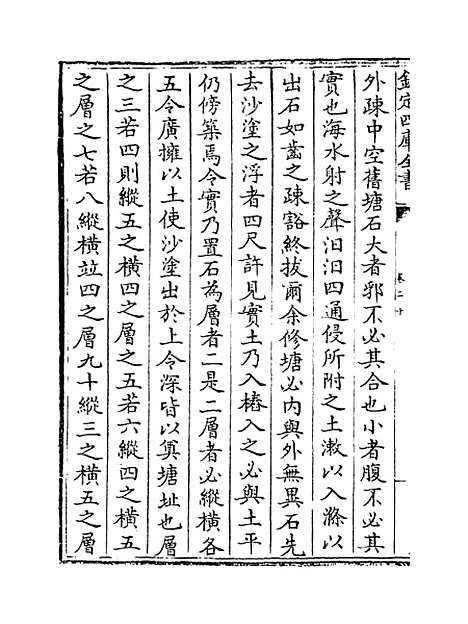 欽定四庫全書
卷二十
外疎中空舊塘石大者邪不必其合也小者腹不必其
實也海水射之聲汩汩四通侵所附之土漱以入滌以
出石如齒之疎豁終拔爾余修塘必内與外無異石先
去沙塗之浮者四尺許見實土乃入樁入之必與土平
仍傍築焉令實乃置石為層者二是二層者必縱橫各
五令廣擁以土使沙塗出於上令深皆以奠塘址也層
之三若四則縱五之橫四之層之五若六縱四之橫五
之層之七若八縱橫竝四之層九十縱三之橫五之層